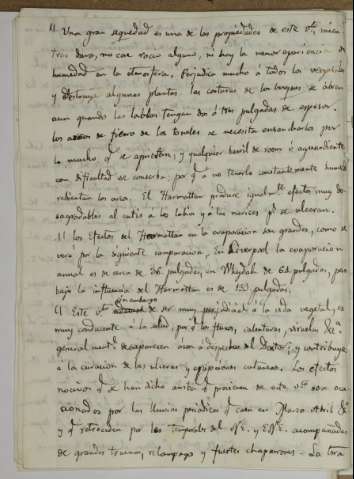 ¶ Una gran sequedad es una de las propiedades de este vto, mien
tras dura, no cae rocio alguno, ni hay la menor apariencia de
humedad en la atmosfera. Perjudica mucho á todos los vegetales
y destruye algunas plantas las costuras de los buques se abren
aun quando las tablas tengan dos ó tres pulgadas de espesor.
los de fierro de los toneles se necesita
lo mucho, q. se aprieten; y qualquier barril de room ó aguardiente
con dificultad se conserva, por q. á no tenerlo constantemente humedo
rebientan los arcos. El Harmattan produce igualmte efectos muy de-
sagradables al cutis á los labios y á las narices ps se ulceran.
¶ los Efectos del Harmattan en la evaporacion son grandes, como se
vera por la siguiente comparacion, en Liverpool la evaporacion
annual es de cerca de 36 pulgadas, en Whydah de 64 pulgadas, pero
bajo la influencia del Harmattan es de 133 pulgadas.
¶ Este vto sin embargo de ser muy perjudicial á la vida vegetal, es
muy conducente á la salud, por q. los fluxos, calenturas, viruelas &a
general mente desaparecen á despecho del Doctor, y contribuye
á la curacion de las ulceras y erupciones cutaneas. Los efectos
nocivos q. se han dicho antes q. provienen de este vto son oca
sionados por las lluvias periodicas q. caen en Marzo Abril &a
y q. retroceden por los temporales del NE. y ESE. acompañadas
de grandes truenos, relampagos y fuertes chaparrones. La tierra